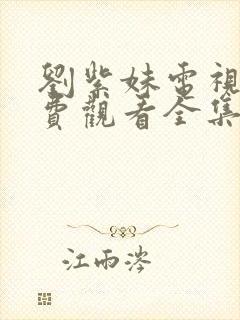 劉紫妹電視
費觀看全集
江雨涔